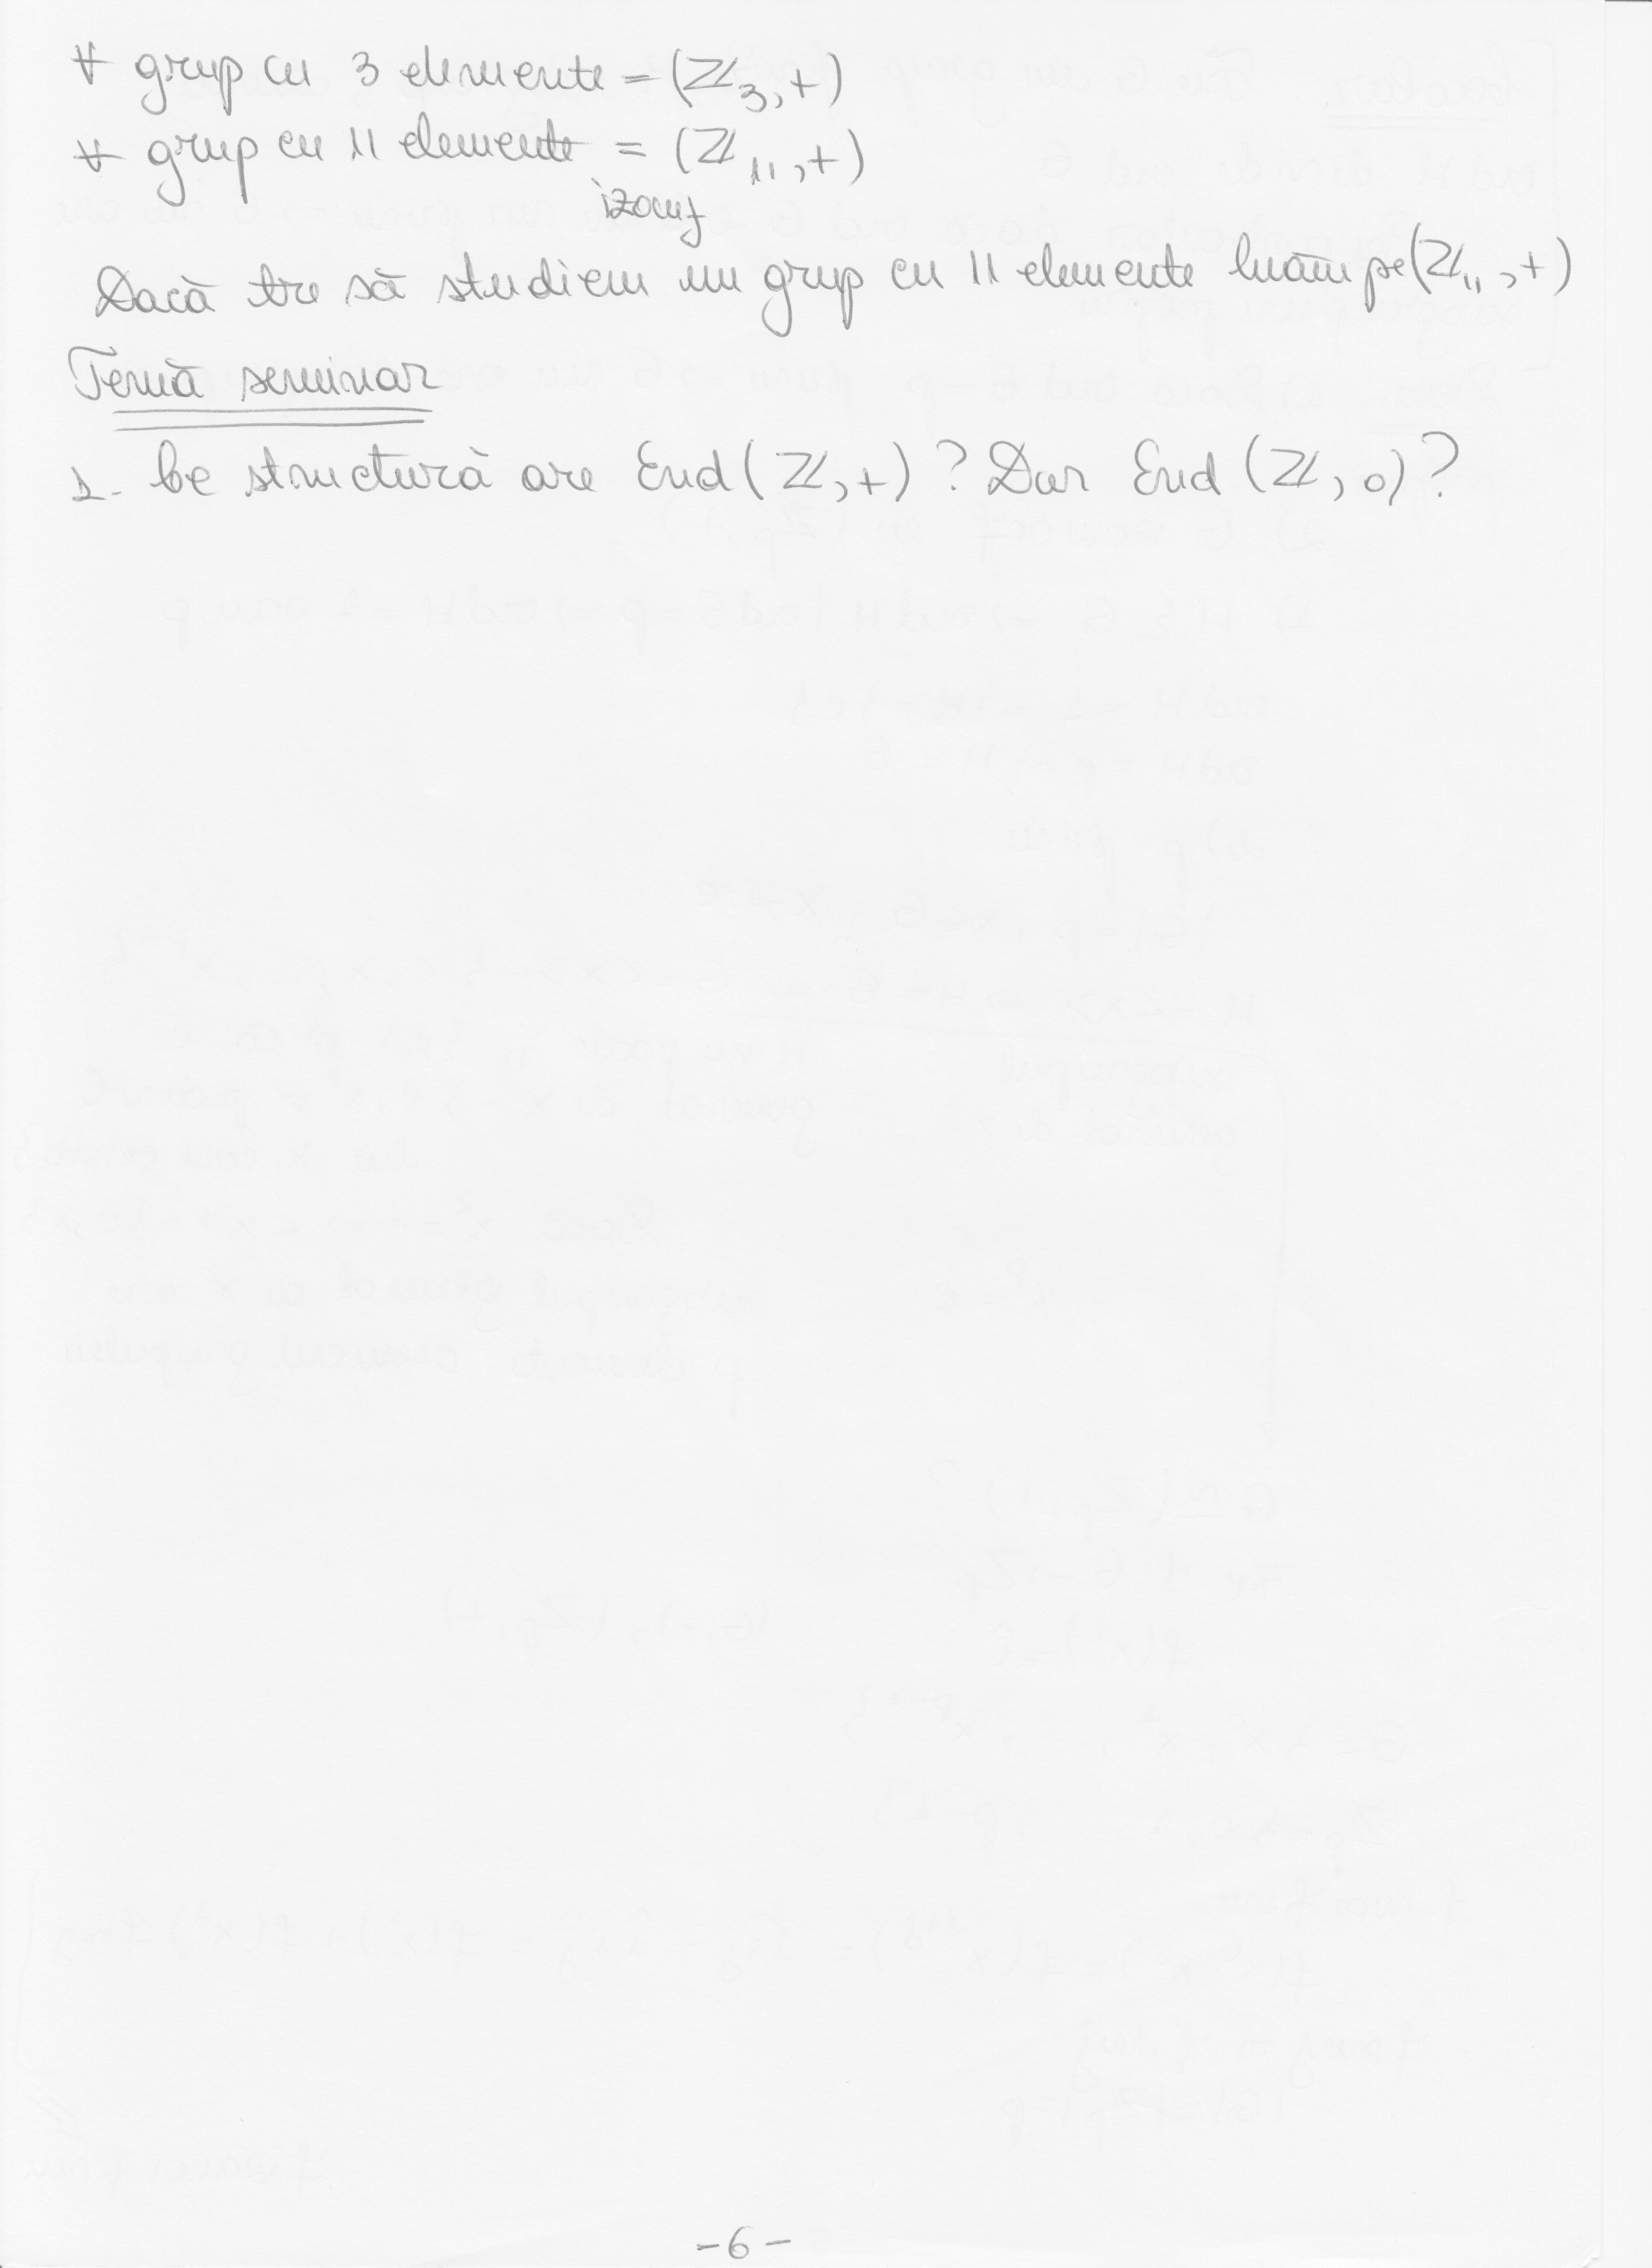 ∀ grup cu 3 elemente = (ℤ₃,+)
∀ grup cu 11 elemente = (ℤ₁₁,+)
izomf
Dacă tre să studiem un grup cu 11 elemente luăm pe (ℤ₁₁,+)
Temă seminar
1. Ce structură are End(ℤ,+)? Dar End(ℤ,∘)?
-6-